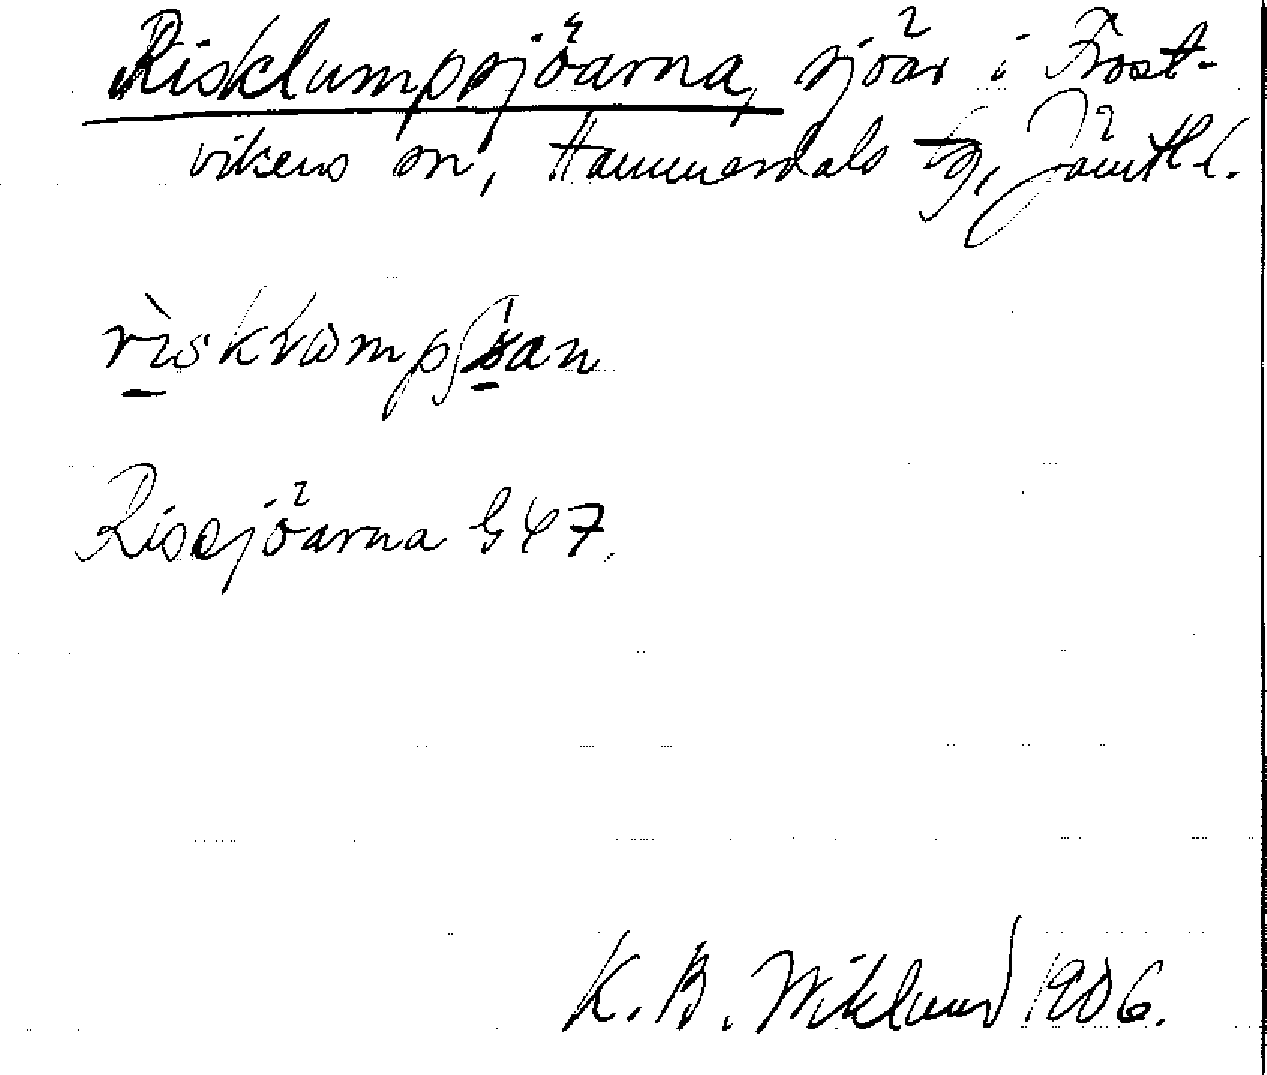 Risklumpsjöarna, sjöar i Frost-
vikens sn, Hammerdals tg, Jämtl l.
Rissjöarna G 47.
K. B. Wiklund 1906.